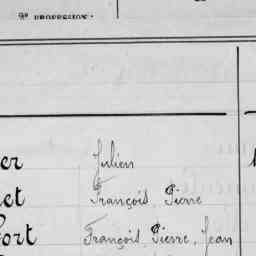 2º PROFESSION.
er Julien
et François, Pierre
fort François, Pierre, Jean